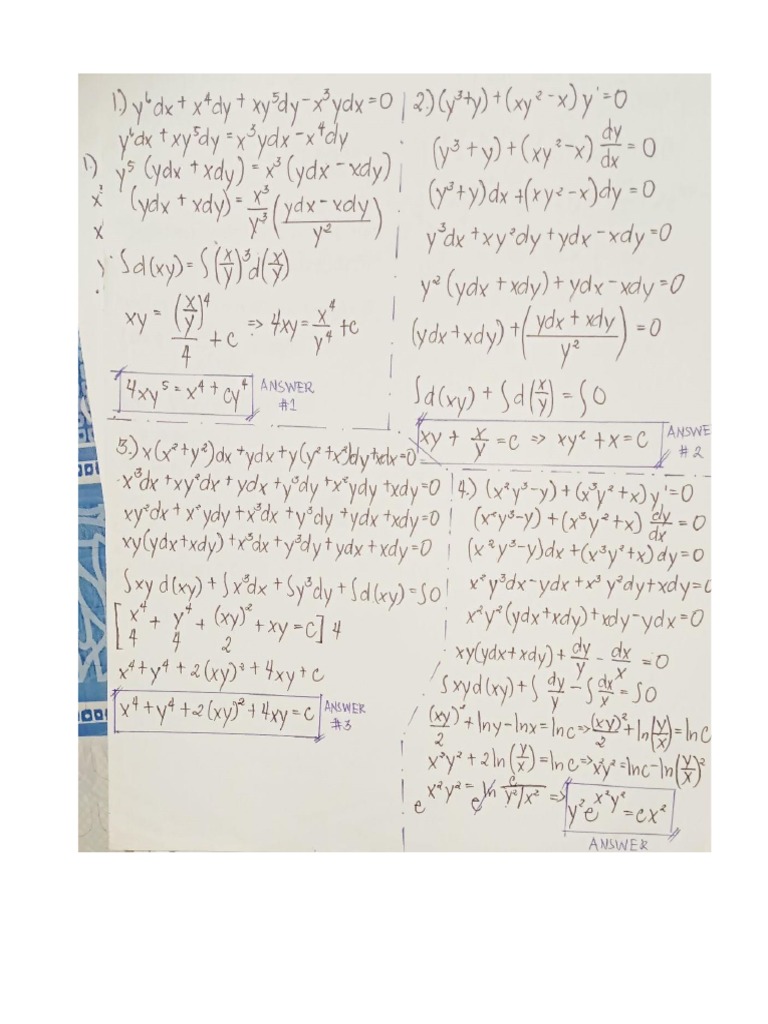 1.) y⁶dx + x⁴dy + xy⁵dy - x³ydx = 0
y⁶dx + xy⁵dy = x³ydx - x⁴dy
1.) y⁵ (ydx + xdy) = x³ (ydx - xdy)
(ydx + xdy) = x³/y³ ((ydx - xdy)/y²)
∫d(xy) = ∫(x/y)³ d(x/y)
xy = (x/y)⁴/4 + c => 4xy = x⁴/y⁴ + c
4xy⁵ = x⁴ + cy⁴ ANSWER #1
2.) (y³+y) + (xy² - x) y' = 0
(y³ + y) + (xy² - x) dy/dx = 0
(y³+y)dx + (xy² - x)dy = 0
y³dx + xy²dy + ydx - xdy = 0
y² (ydx + xdy) + ydx - xdy = 0
(ydx + xdy) + ((ydx + xdy)/y²) = 0
∫d(xy) + ∫d(x/y) = ∫0
xy + x/y = c => xy² + x = c ANSWE #2
3.) x(x²+y²)dx + ydx + y(y²+x²)dy + xdx = 0
x³dx + xy²dx + ydx + y³dy + x²ydy + xdy = 0
xy²dx + x²ydy + x³dx + y³dy + ydx + xdy = 0
xy(ydx + xdy) + x³dx + y³dy + ydx + xdy = 0
∫xy d(xy) + ∫x³dx + ∫y³dy + ∫d(xy) = ∫0
[x⁴/4 + y⁴/4 + (xy)²/2 + xy = c] 4
x⁴ + y⁴ + 2(xy)² + 4xy + c
x⁴ + y⁴ + 2(xy)² + 4xy = c ANSWER #3
4.) (x²y³ - y) + (x³y² + x) y' = 0
(x²y³ - y) + (x³y² + x) dy/dx = 0
(x²y³ - y)dx + (x³y² + x) dy = 0
x²y³dx - ydx + x³y²dy + xdy = 0
x²y²(ydx + xdy) + xdy - ydx = 0
xy(ydx + xdy) + dy/y - dx/x = 0
∫xyd(xy) + ∫dy/y - ∫dx/x = ∫0
(xy)²/2 + lny - lnx = lnc => (xy)²/2 + ln(y/x) = lnc
x²y² + 2ln(y/x) = lnc => x²y² = lnc - ln(y/x)²
e^x²y² = e^ln c/(y²/x²) => y²e^x²y² = cx²
ANSWER